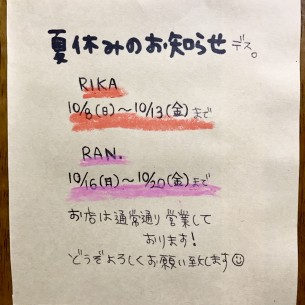 夏休みのお知らせデス。
RIKA
10/8(日)〜10/13(金)まで
RAN.
10/16(月)〜10/20(金)まで
お店は通常通り営業して
おります!
どうぞよろしくお願い致します☺